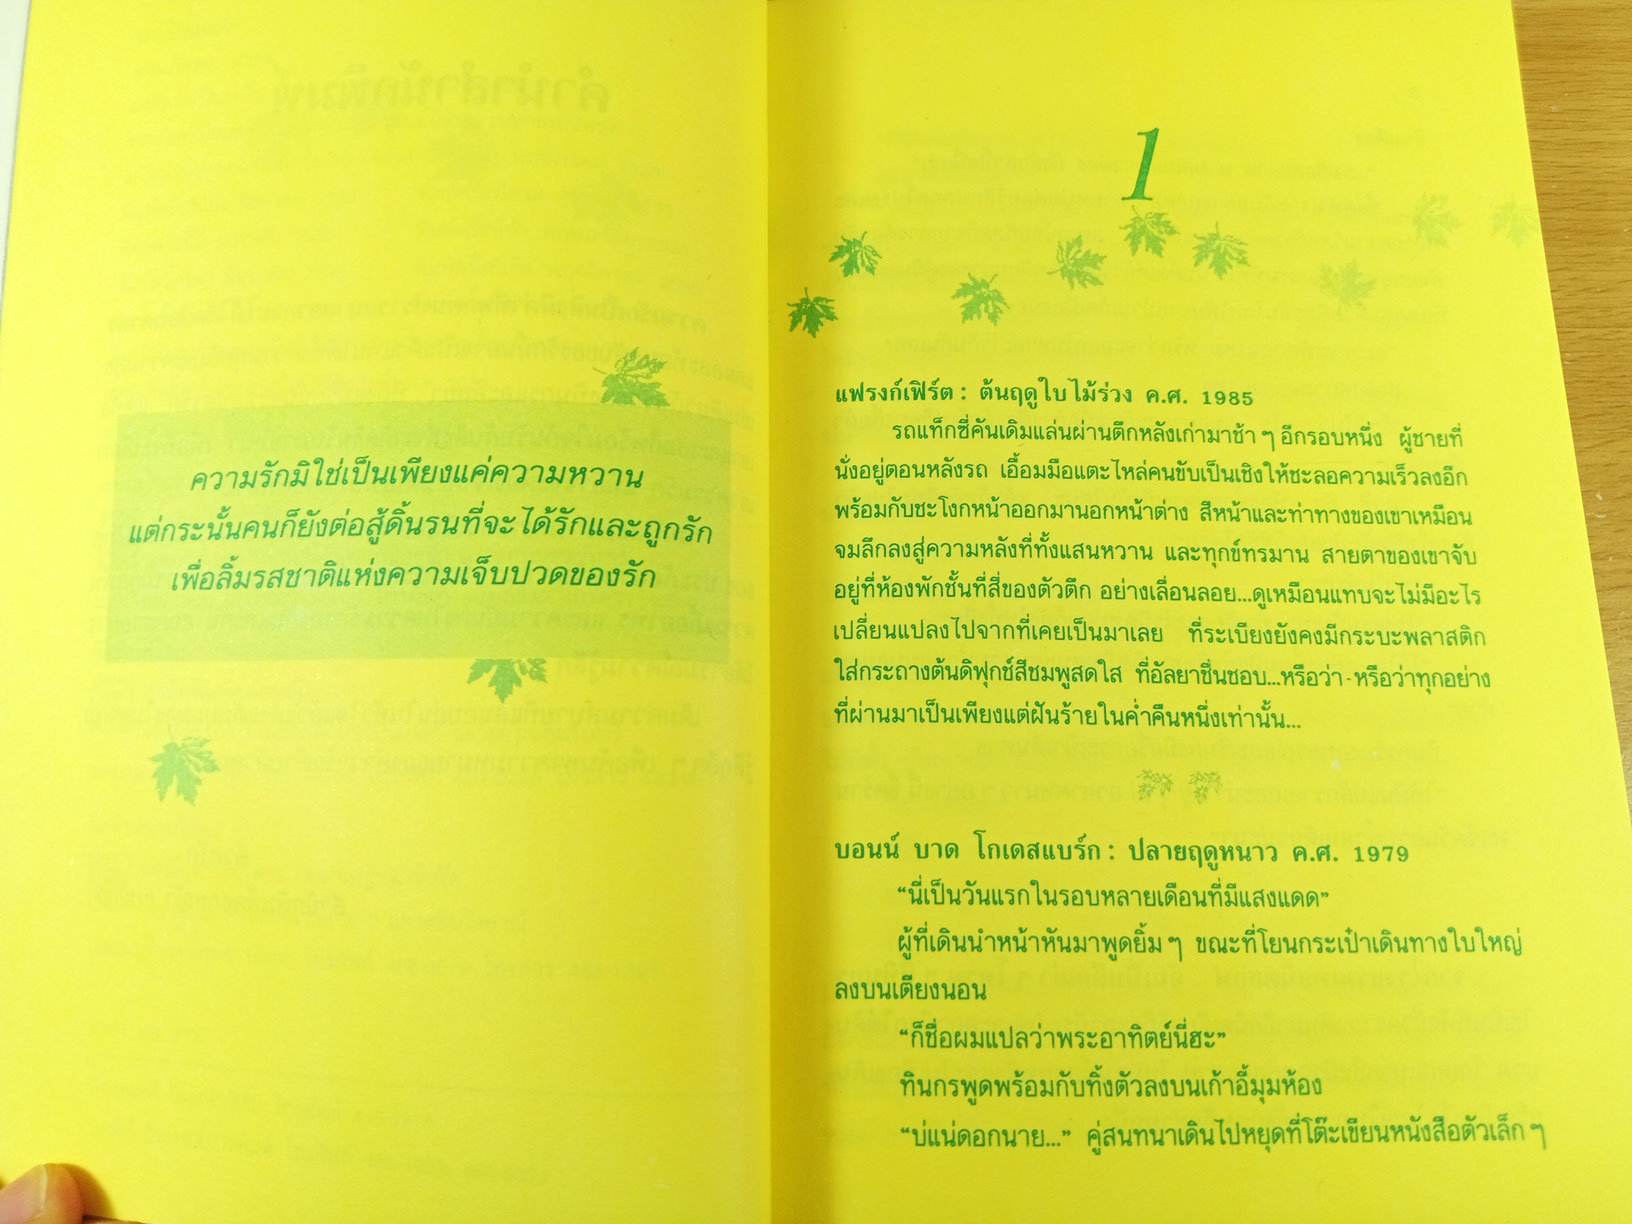 ความรักมิใช่เป็นเพียงแค่ความหวาน
แต่กระนั้นคนก็ยังต่อสู้ดิ้นรนที่จะได้รักและถูกรัก
เพื่อลิ้มรสชาติแห่งความเจ็บปวดของรัก
1
แฟรงก์เฟิร์ต : ต้นฤดูใบไม้ร่วง ค.ศ. 1985
รถแท็กซี่คันเดิมแล่นผ่านตึกหลังเก่ามาช้า ๆ อีกรอบหนึ่ง ผู้ชายที่
นั่งอยู่ตอนหลังรถ เอื้อมมือแตะไหล่คนขับเป็นเชิงให้ชะลอความเร็วลงอีก
พร้อมกับชะโงกหน้าออกมานอกหน้าต่าง สีหน้าและท่าทางของเขาเหมือน
จมลึกลงสู่ความหลังที่ทั้งแสนหวาน และทุกข์ทรมาน สายตาของเขาจับ
อยู่ที่ห้องพักชั้นที่สี่ของตัวตึก อย่างเลื่อนลอย...ดูเหมือนแทบจะไม่มีอะไร
เปลี่ยนแปลงไปจากที่เคยเป็นมาเลย ที่ระเบียงยังคงมีกระบะพลาสติก
ใส่กระถางต้นดิฟุกช์สีชมพูสดใส ที่อัลยาชื่นชอบ...หรือว่า - หรือว่าทุกอย่าง
ที่ผ่านมาเป็นเพียงแต่ฝันร้ายในค่ำคืนหนึ่งเท่านั้น...
บอนน์ บาด โกเดสแบร์ก : ปลายฤดูหนาว ค.ศ. 1979
“นี่เป็นวันแรกในรอบหลายเดือนที่มีแสงแดด”
ผู้ที่เดินนำหน้าหันมาพูดยิ้ม ๆ ขณะที่โยนกระเป๋าเดินทางใบใหญ่
ลงบนเตียงนอน
“ก็ชื่อผมแปลว่าพระอาทิตย์นี่ฮะ”
ทินกรพูดพร้อมกับทิ้งตัวลงบนเก้าอี้มุมห้อง
“บ่แน่ดอกนาย...” คู่สนทนาเดินไปหยุดที่โต๊ะเขียนหนังสือตัวเล็ก ๆ